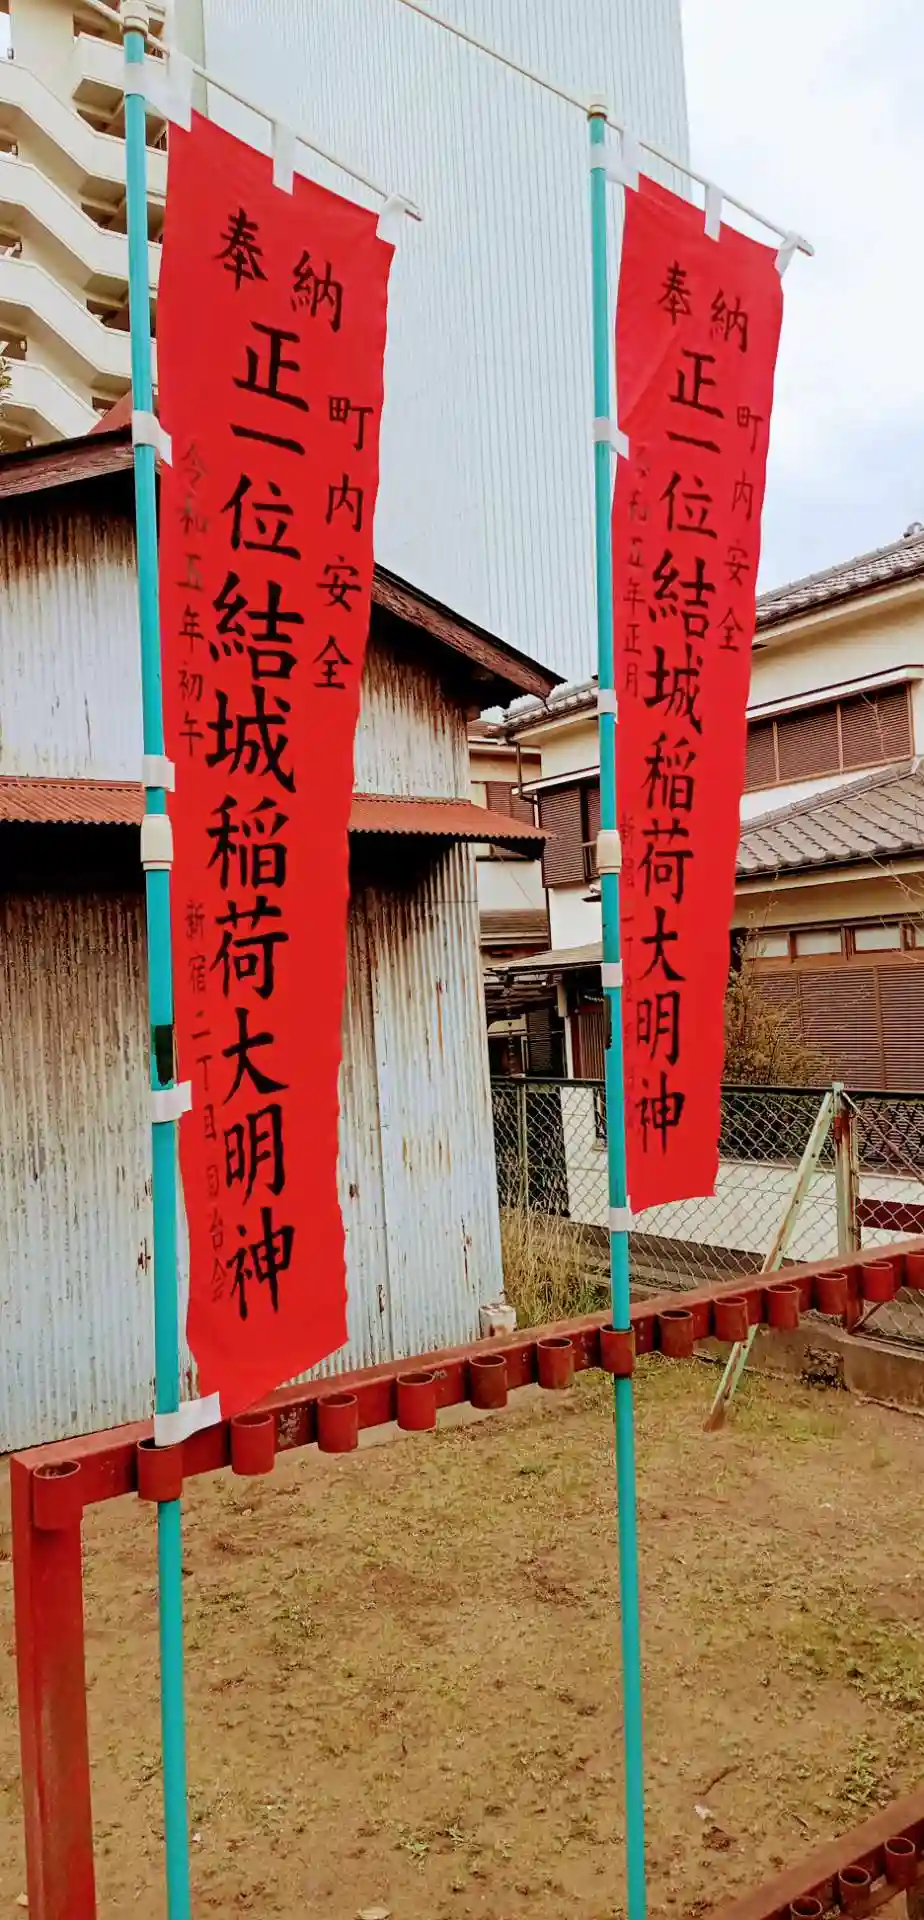 奉納
町内安全
正一位結城稲荷大明神
令和五年初午
新宿二丁目自治会
奉納
町内安全
正一位結城稲荷大明神
令和五年正月
新宿一丁